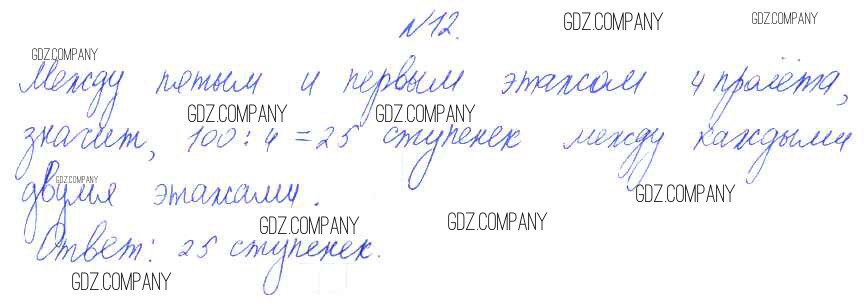 №12.
GDZ.COMPANY GDZ.COMPANY
GDZ.COMPANY
Между пятым и первым этажом 4 пролёта,
GDZ.COMPANY GDZ.COMPANY
значит, 100 : 4 = 25 ступенек между каждыми
GDZ.COMPANY
двумя этажами.
GDZ.COMPANY
GDZ.COMPANY GDZ.COMPANY
Ответ: 25 ступенек.
GDZ.COMPANY